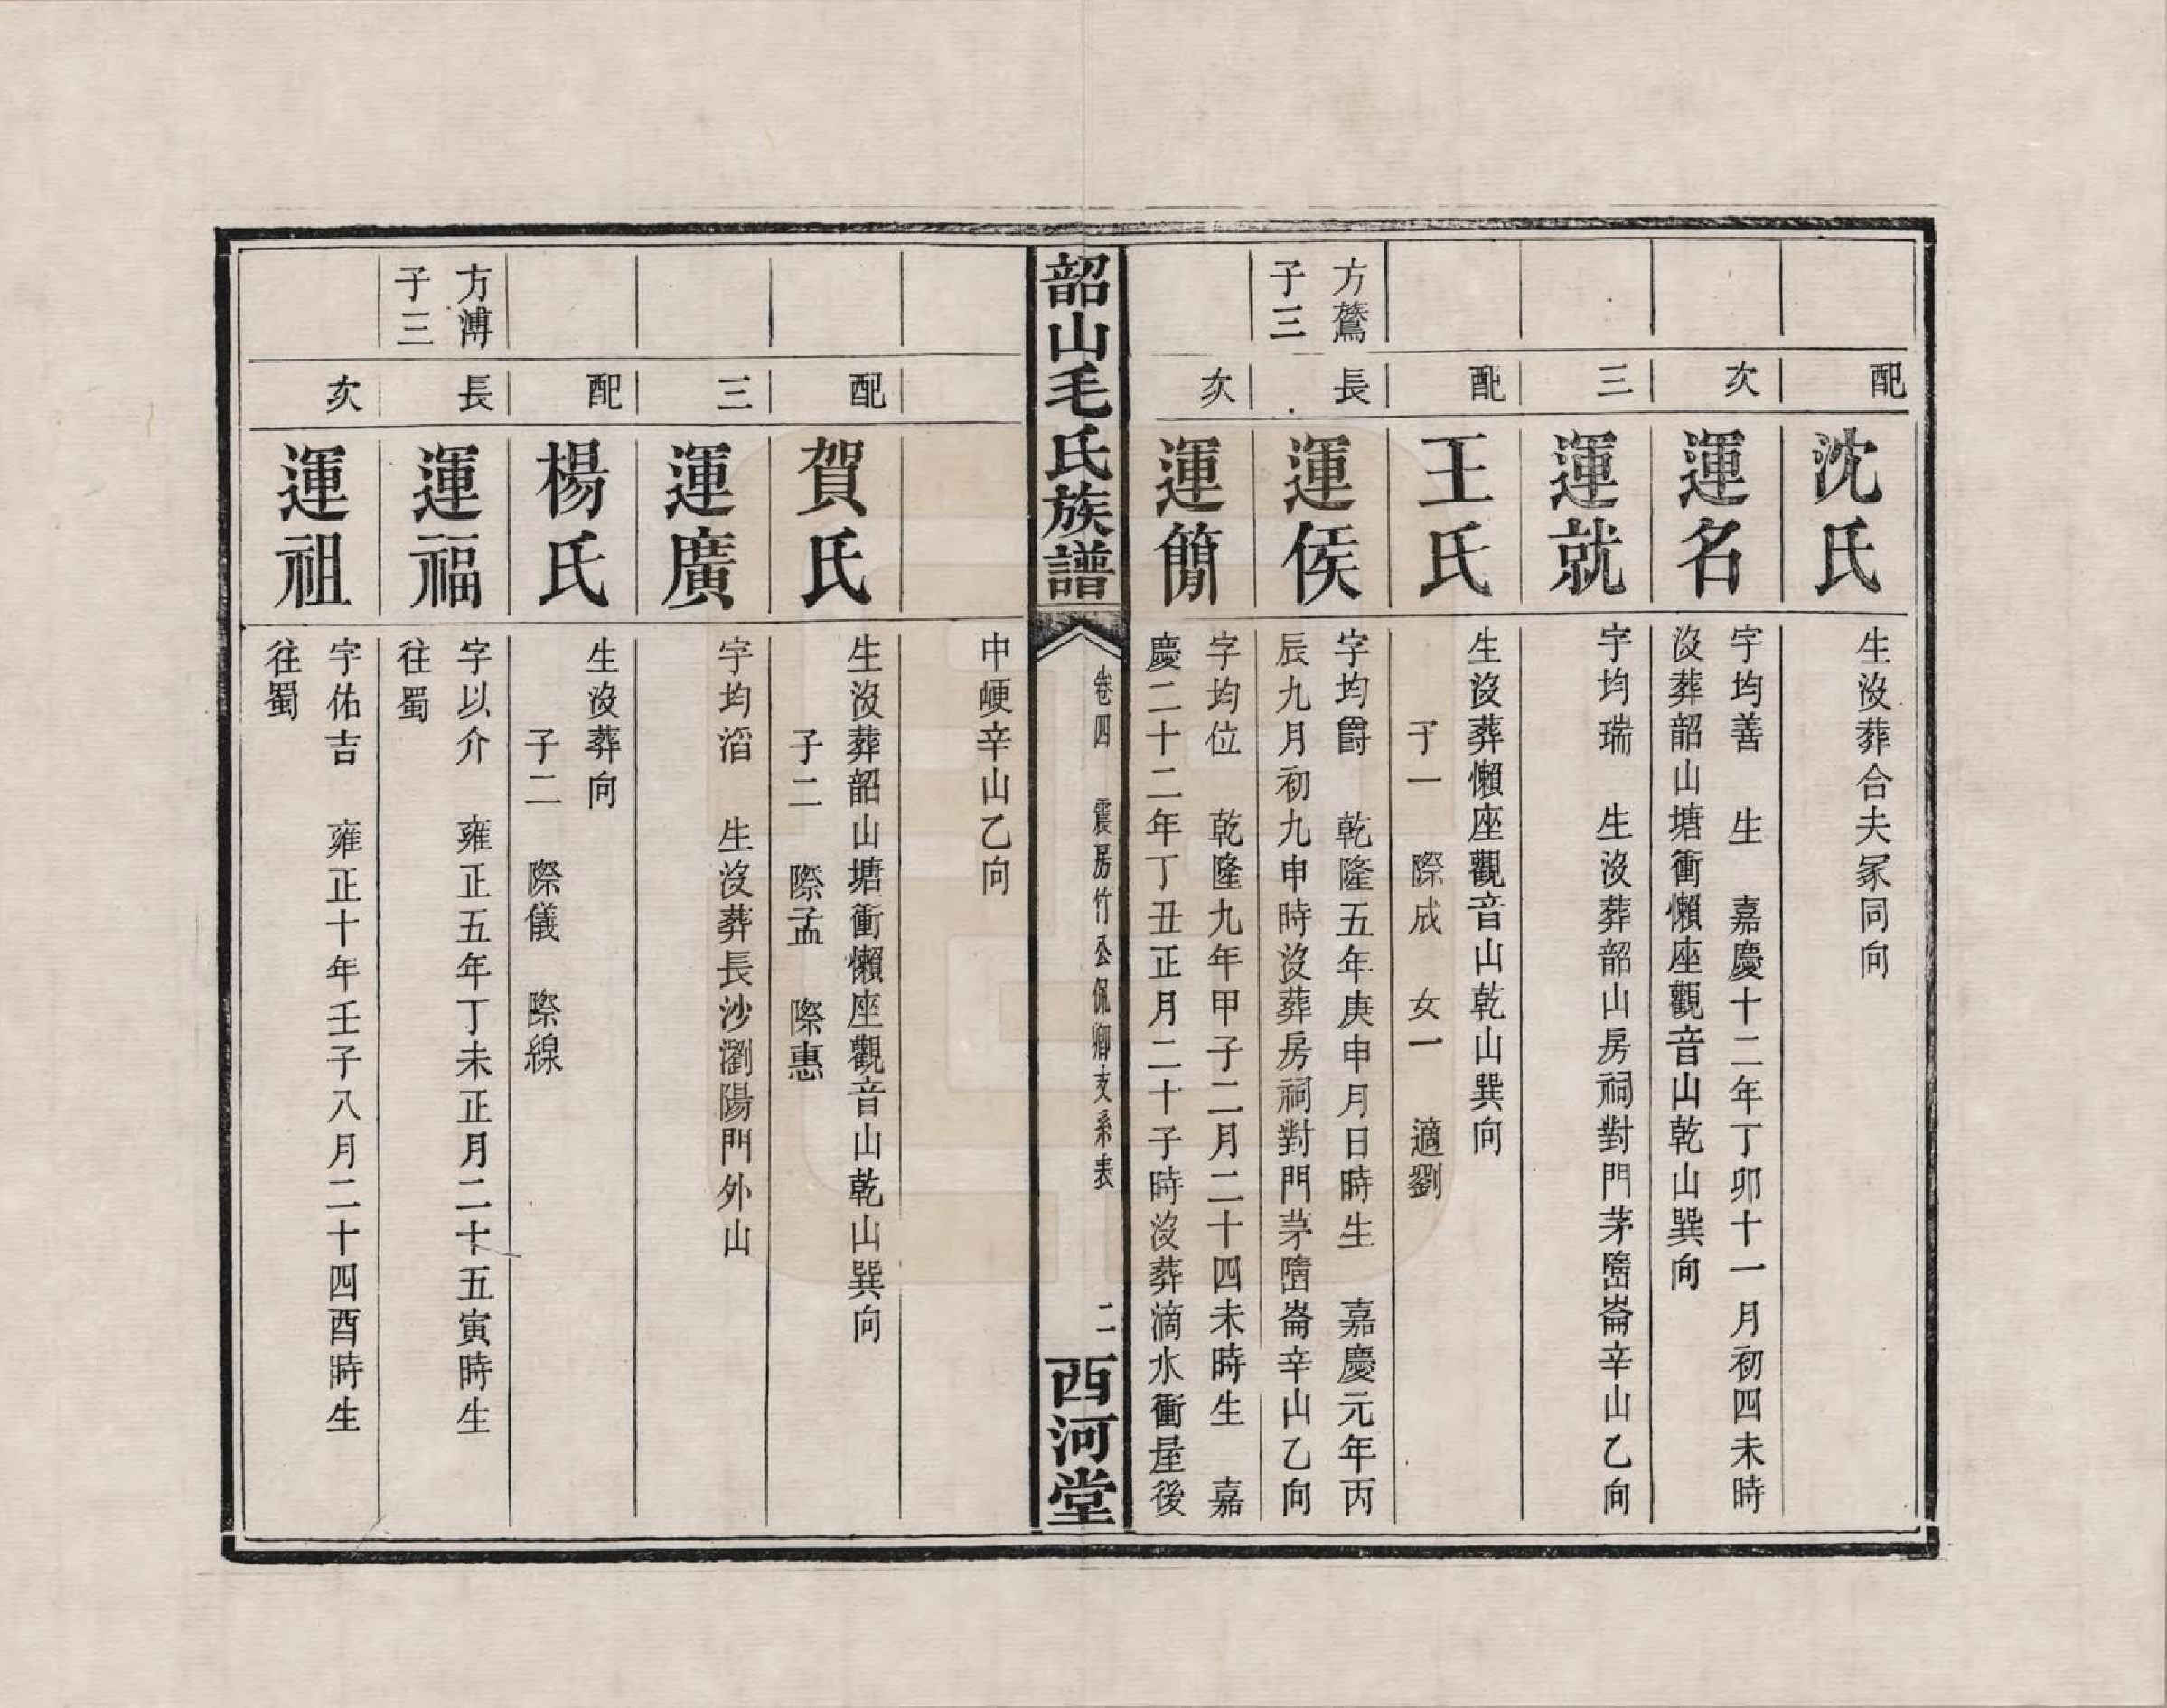 配
沈氏
生沒葬合夫冢同向
次
運名
字均善　生　嘉慶十二年丁卯十一月初四未時
沒葬韶山塘衝懶座觀音山乾山巽向
三
運就
字均瑞　生沒葬韶山房祠對門茅㟅崙辛山乙向
配
王氏
生沒葬懶座觀音山乾山巽向
子一　際成　女一　適劉
方鷟
子三
長
運侯
字均爵　乾隆五年庚申月日時生　嘉慶元年丙
辰九月初九申時沒葬房祠對門茅㟅崙辛山乙向
次
運簡
字均位　乾隆九年甲子二月二十四未時生　嘉
慶二十二年丁丑正月二十子時沒葬滴水衝屋後
韶山毛氏族譜
卷四　震房竹公侃卿支系表
二
西河堂
中㟅辛山乙向
配
賀氏
生沒葬韶山塘衝懶座觀音山乾山巽向
子二　際孟　際惠
三
運廣
字均滔　生沒葬長沙瀏陽門外山
配
楊氏
生沒葬向
子二　際儀　際線
方溥
子三
長
運福
字以介　雍正五年丁未正月二十五寅時生
往蜀
次
運祖
字佑吉　雍正十年壬子八月二十四酉時生
往蜀